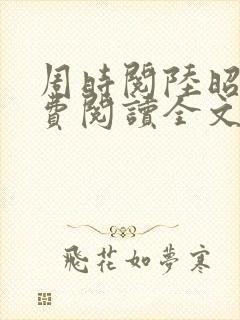 周時閱陸昭
費閱讀全文
飛花如夢寒